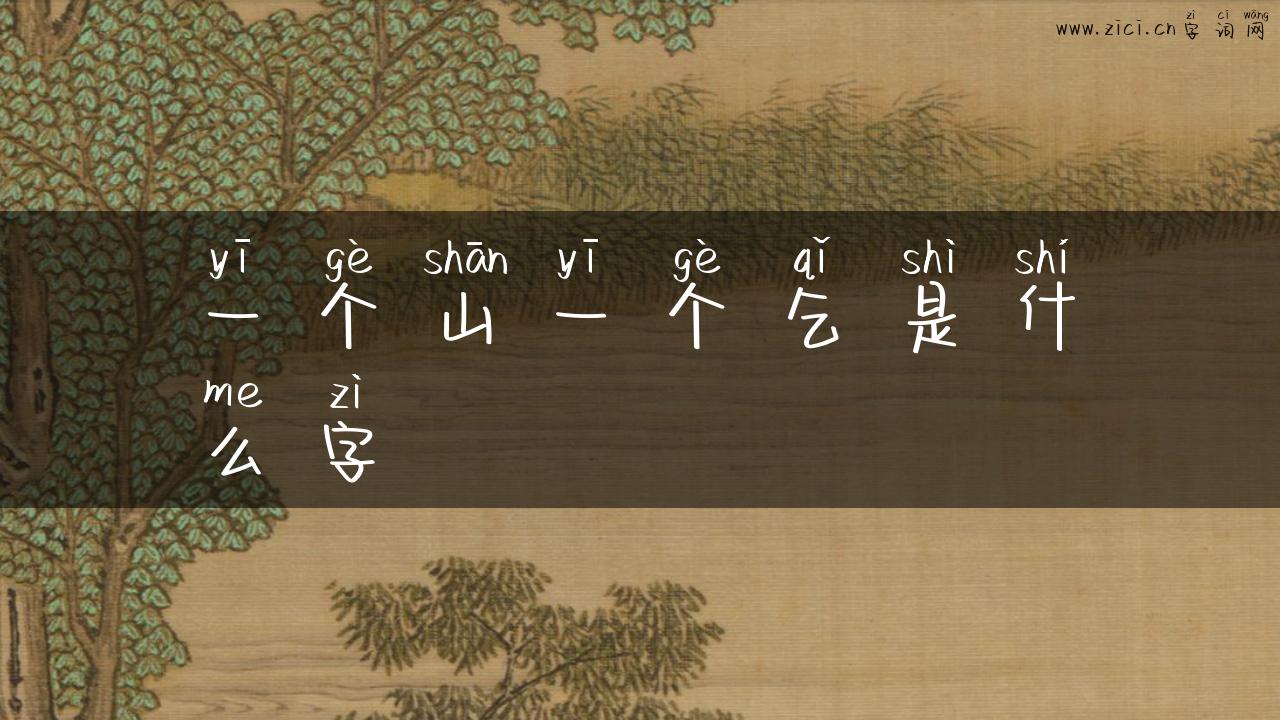 zì cí wǎng
www.zici.cn 字词网
yī gè shān yī gè qǐ shì shí
一个山一个乞是什
me zì
么字